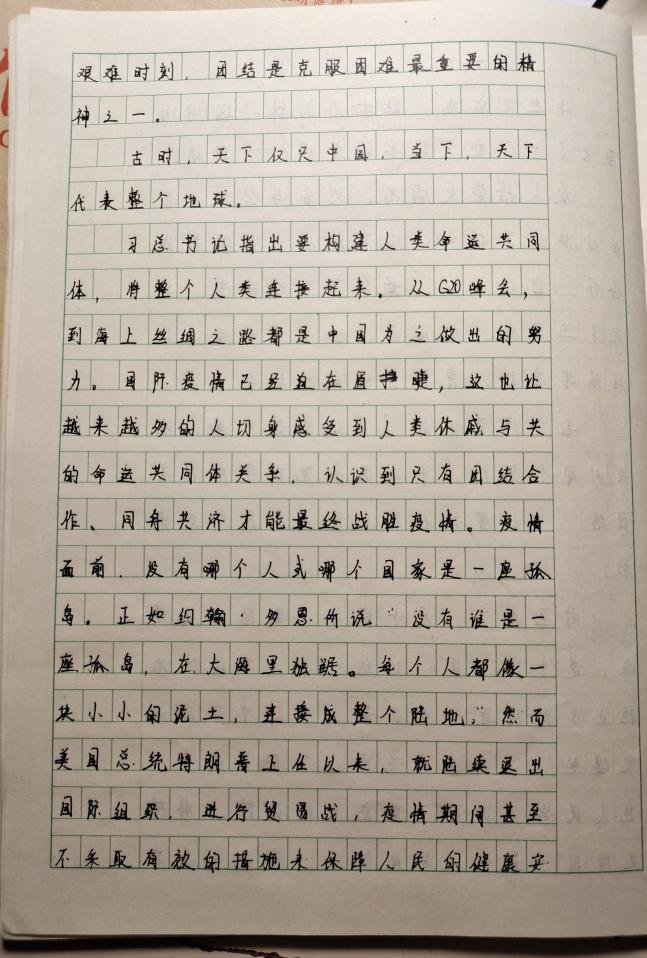 艰难时刻，团结是克服困难最重要的精
神之一。
古时，天下仅只中国，当下，天下
代表整个地球。
习总书记指出要构建人类命运共同
体，将整个人类连接起来。从G20峰会，
到海上丝绸之路都是中国为之做出的努
力。国际疫情已经迫在眉睫，这也让
越来越多的人切身感受到人类休戚与共
的命运共同体关系，认识到只有团结合
作、同舟共济才能最终战胜疫情。疫情
面前，没有哪个人或哪个国家是一座孤
岛。正如约翰·多恩所说“没有谁是一
座孤岛，在大海里独踞。每个人都像一
块小小的泥土，连接成整个陆地。”然而
美国总统特朗普上任以来，就陆续退出
国际组织，进行贸易战，疫情期间甚至
不采取有效的措施来保障人民的健康安